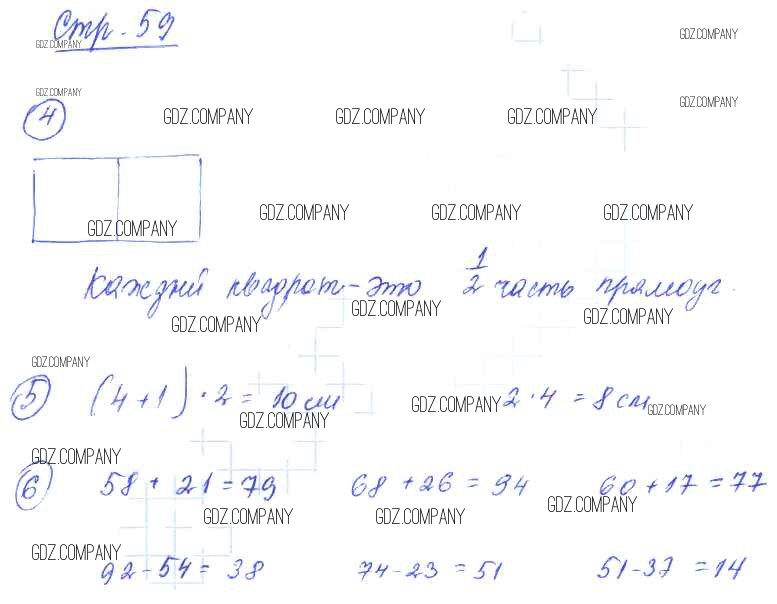 Стр. 59
GDZ.COMPANY GDZ.COMPANY
GDZ.COMPANY GDZ.COMPANY
4 GDZ.COMPANY GDZ.COMPANY GDZ.COMPANY
GDZ.COMPANY GDZ.COMPANY GDZ.COMPANY GDZ.COMPANY
Каждый квадрат - это 1/2 часть прямоуг.
GDZ.COMPANY GDZ.COMPANY GDZ.COMPANY
GDZ.COMPANY
5 (4+1) · 2 = 10 см 2 · 4 = 8 см
GDZ.COMPANY GDZ.COMPANY GDZ.COMPANY
GDZ.COMPANY
6 58 + 21 = 79 68 + 26 = 94 60 + 17 = 77
GDZ.COMPANY GDZ.COMPANY GDZ.COMPANY
GDZ.COMPANY
92 - 54 = 38 74 - 23 = 51 51 - 37 = 14